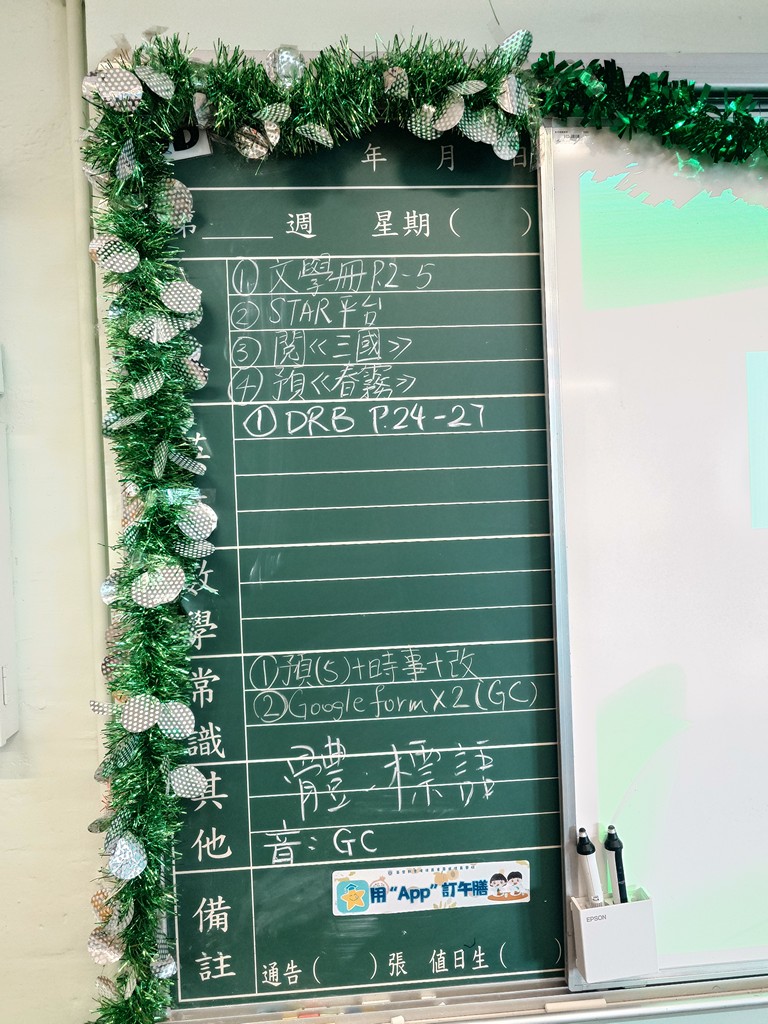 D
年 月 日
第 ____ 週 星期( )
① 文學冊 P.2-5
② STAR平台
③ 閱《三國》
④ 預《春霧》
① DRB P.24-27
數學
常識
① 預(5)+時事+改
② Google form X 2 (GC)
其他
體:標語
音:GC
備註
用“App”訂午膳
通告( )張 值日生( )
EPSON